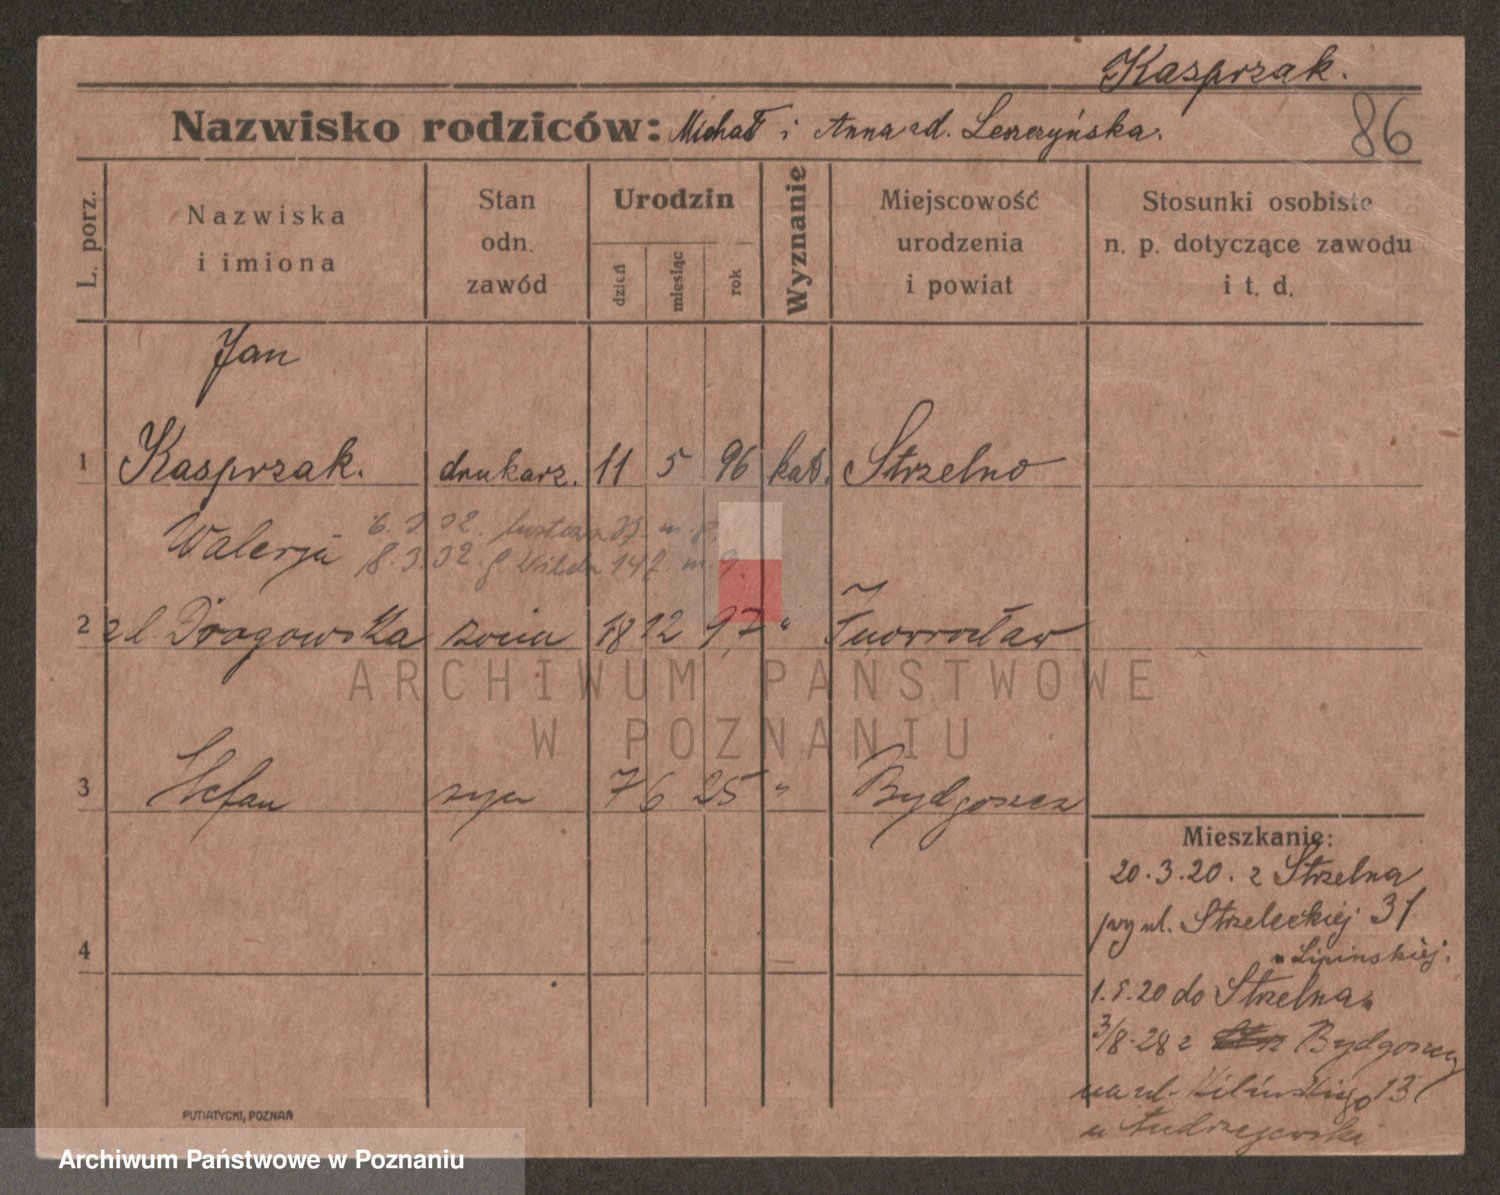 Kasprzak.
Nazwisko rodziców: Michał i Anna zd. Leszczyńska.
86
L. porz.
Nazwiska
i imiona
Stan
odn.
zawód
Urodzin
dzień
miesiąc
rok
Wyznanie
Miejscowość
urodzenia
i powiat
Stosunki osobiste
n. p. dotyczące zawodu
i t. d.
Jan
1 Kasprzak. drukarz. 11 5 96 kat. Strzelno
Walerja
8.3.32.
2 Drogowska żona 18 12 97 " Inowrocław
3 Stefan syn 7 6 25 " Bydgoszcz
4
Mieszkanie:
20.3.20. z Strzelna
przy ul. Strzeleckiej 31
u Lipińskiej.
1.5.20 do Strzelna
3/8.28 z Bydgoszczy
na ul. Kilińskiego 13
u Andrzejewski
PUTIATYCKI, POZNAŃ
ARCHIWUM PAŃSTWOWE
W POZNANIU
Archiwum Państwowe w Poznaniu